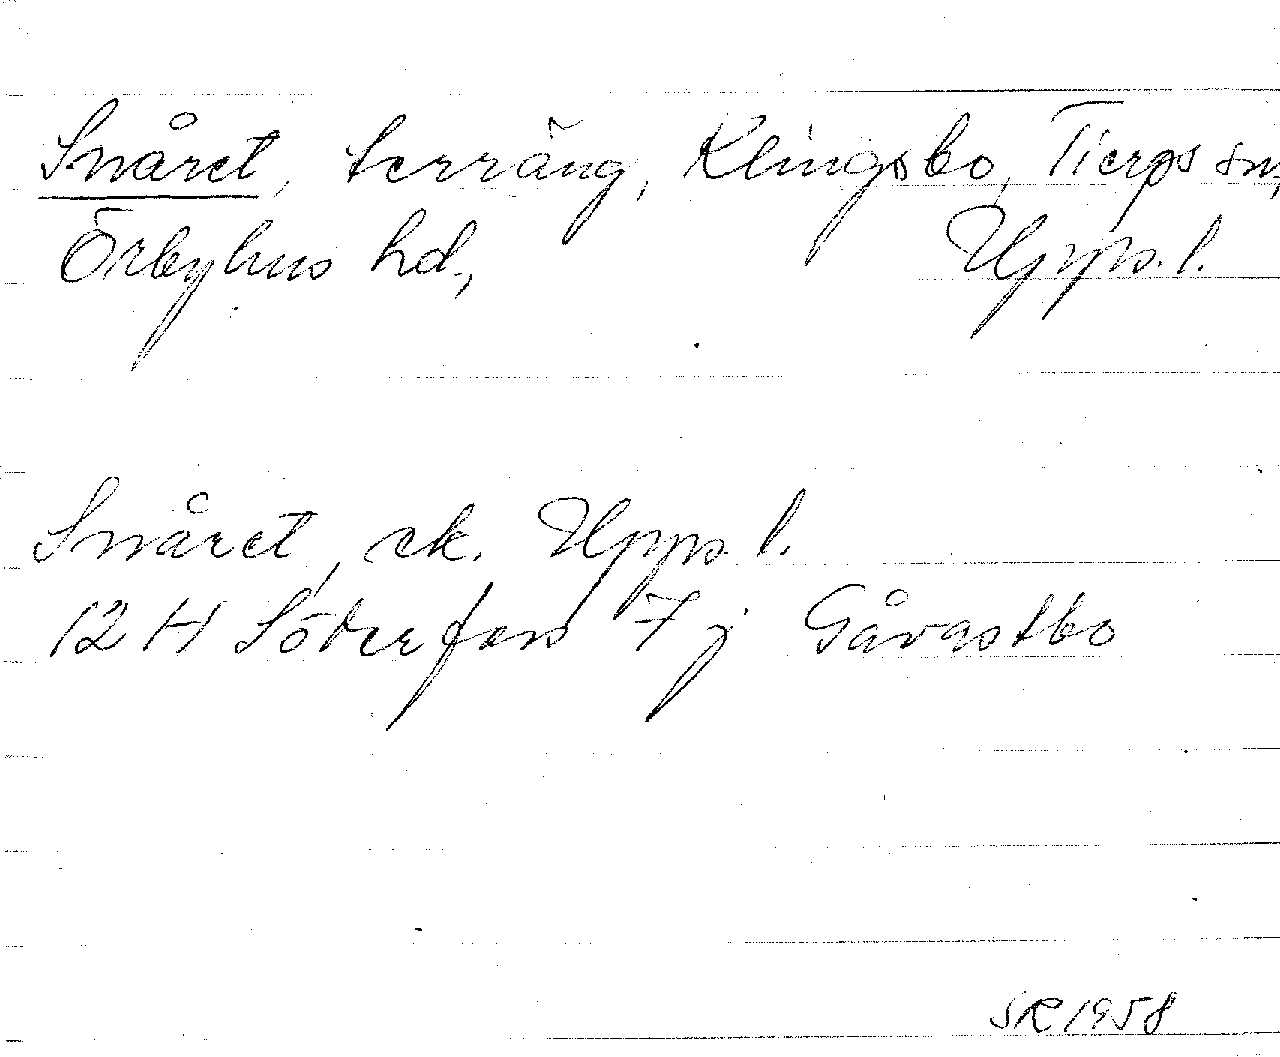 Snåret, terräng, Klingsbo, Tierps sn,
Örbyhus hd, Upps. l.
Snåret, ek. Upps l.
12 H Söderfors 7 j Gåvastbo
SR 1958